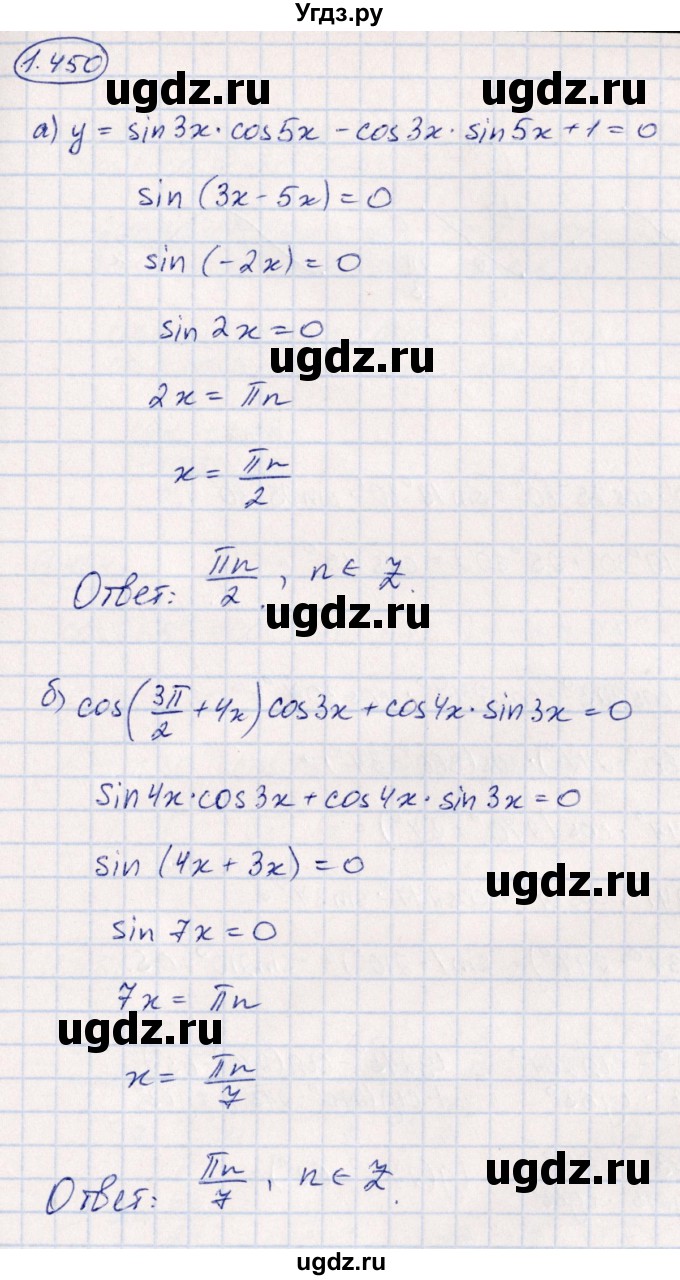 Угдз.ру
1.450
ugdz.ru ugdz.ru
а) y = sin 3x · cos 5x − cos 3x · sin 5x + 1 = 0
sin (3x − 5x) = 0
sin (−2x) = 0
sin 2x = 0
ugdz.ru
2x = πn
x = πn/2
Ответ: πn/2, n ∈ Z.
ugdz.ru
б) cos(3π/2 + 4x) cos 3x + cos 4x · sin 3x = 0
sin 4x · cos 3x + cos 4x · sin 3x = 0
sin (4x + 3x) = 0
ugdz.ru
sin 7x = 0
7x = πn
ugdz.ru
x = πn/7
Ответ: πn/7, n ∈ Z.
ugdz.ru
ugdz.ru